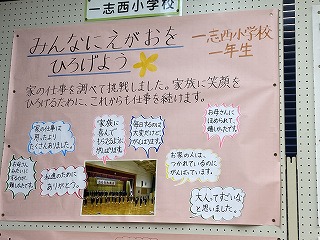 一志西小学校
みんなにえがおを
ひろげよう
一志西小学校
一年生
家の仕事を調べて挑戦しました。家族に笑顔を
ひろげるために、これからも仕事を続けます。
家の仕事は、
思ったより
たくさんありました。
家族に
喜んで
もらえるように
がんばります。
毎日するのは
大変だけど
がんばります。
お母さんに
ほめられて、
嬉しかったです。
お母さん
みたいに
するのが
難しかったです。
私達のために
ありがとう。
お家の人は、
つかれているのに
がんばっています。
大人ってすごいな
と思いました。